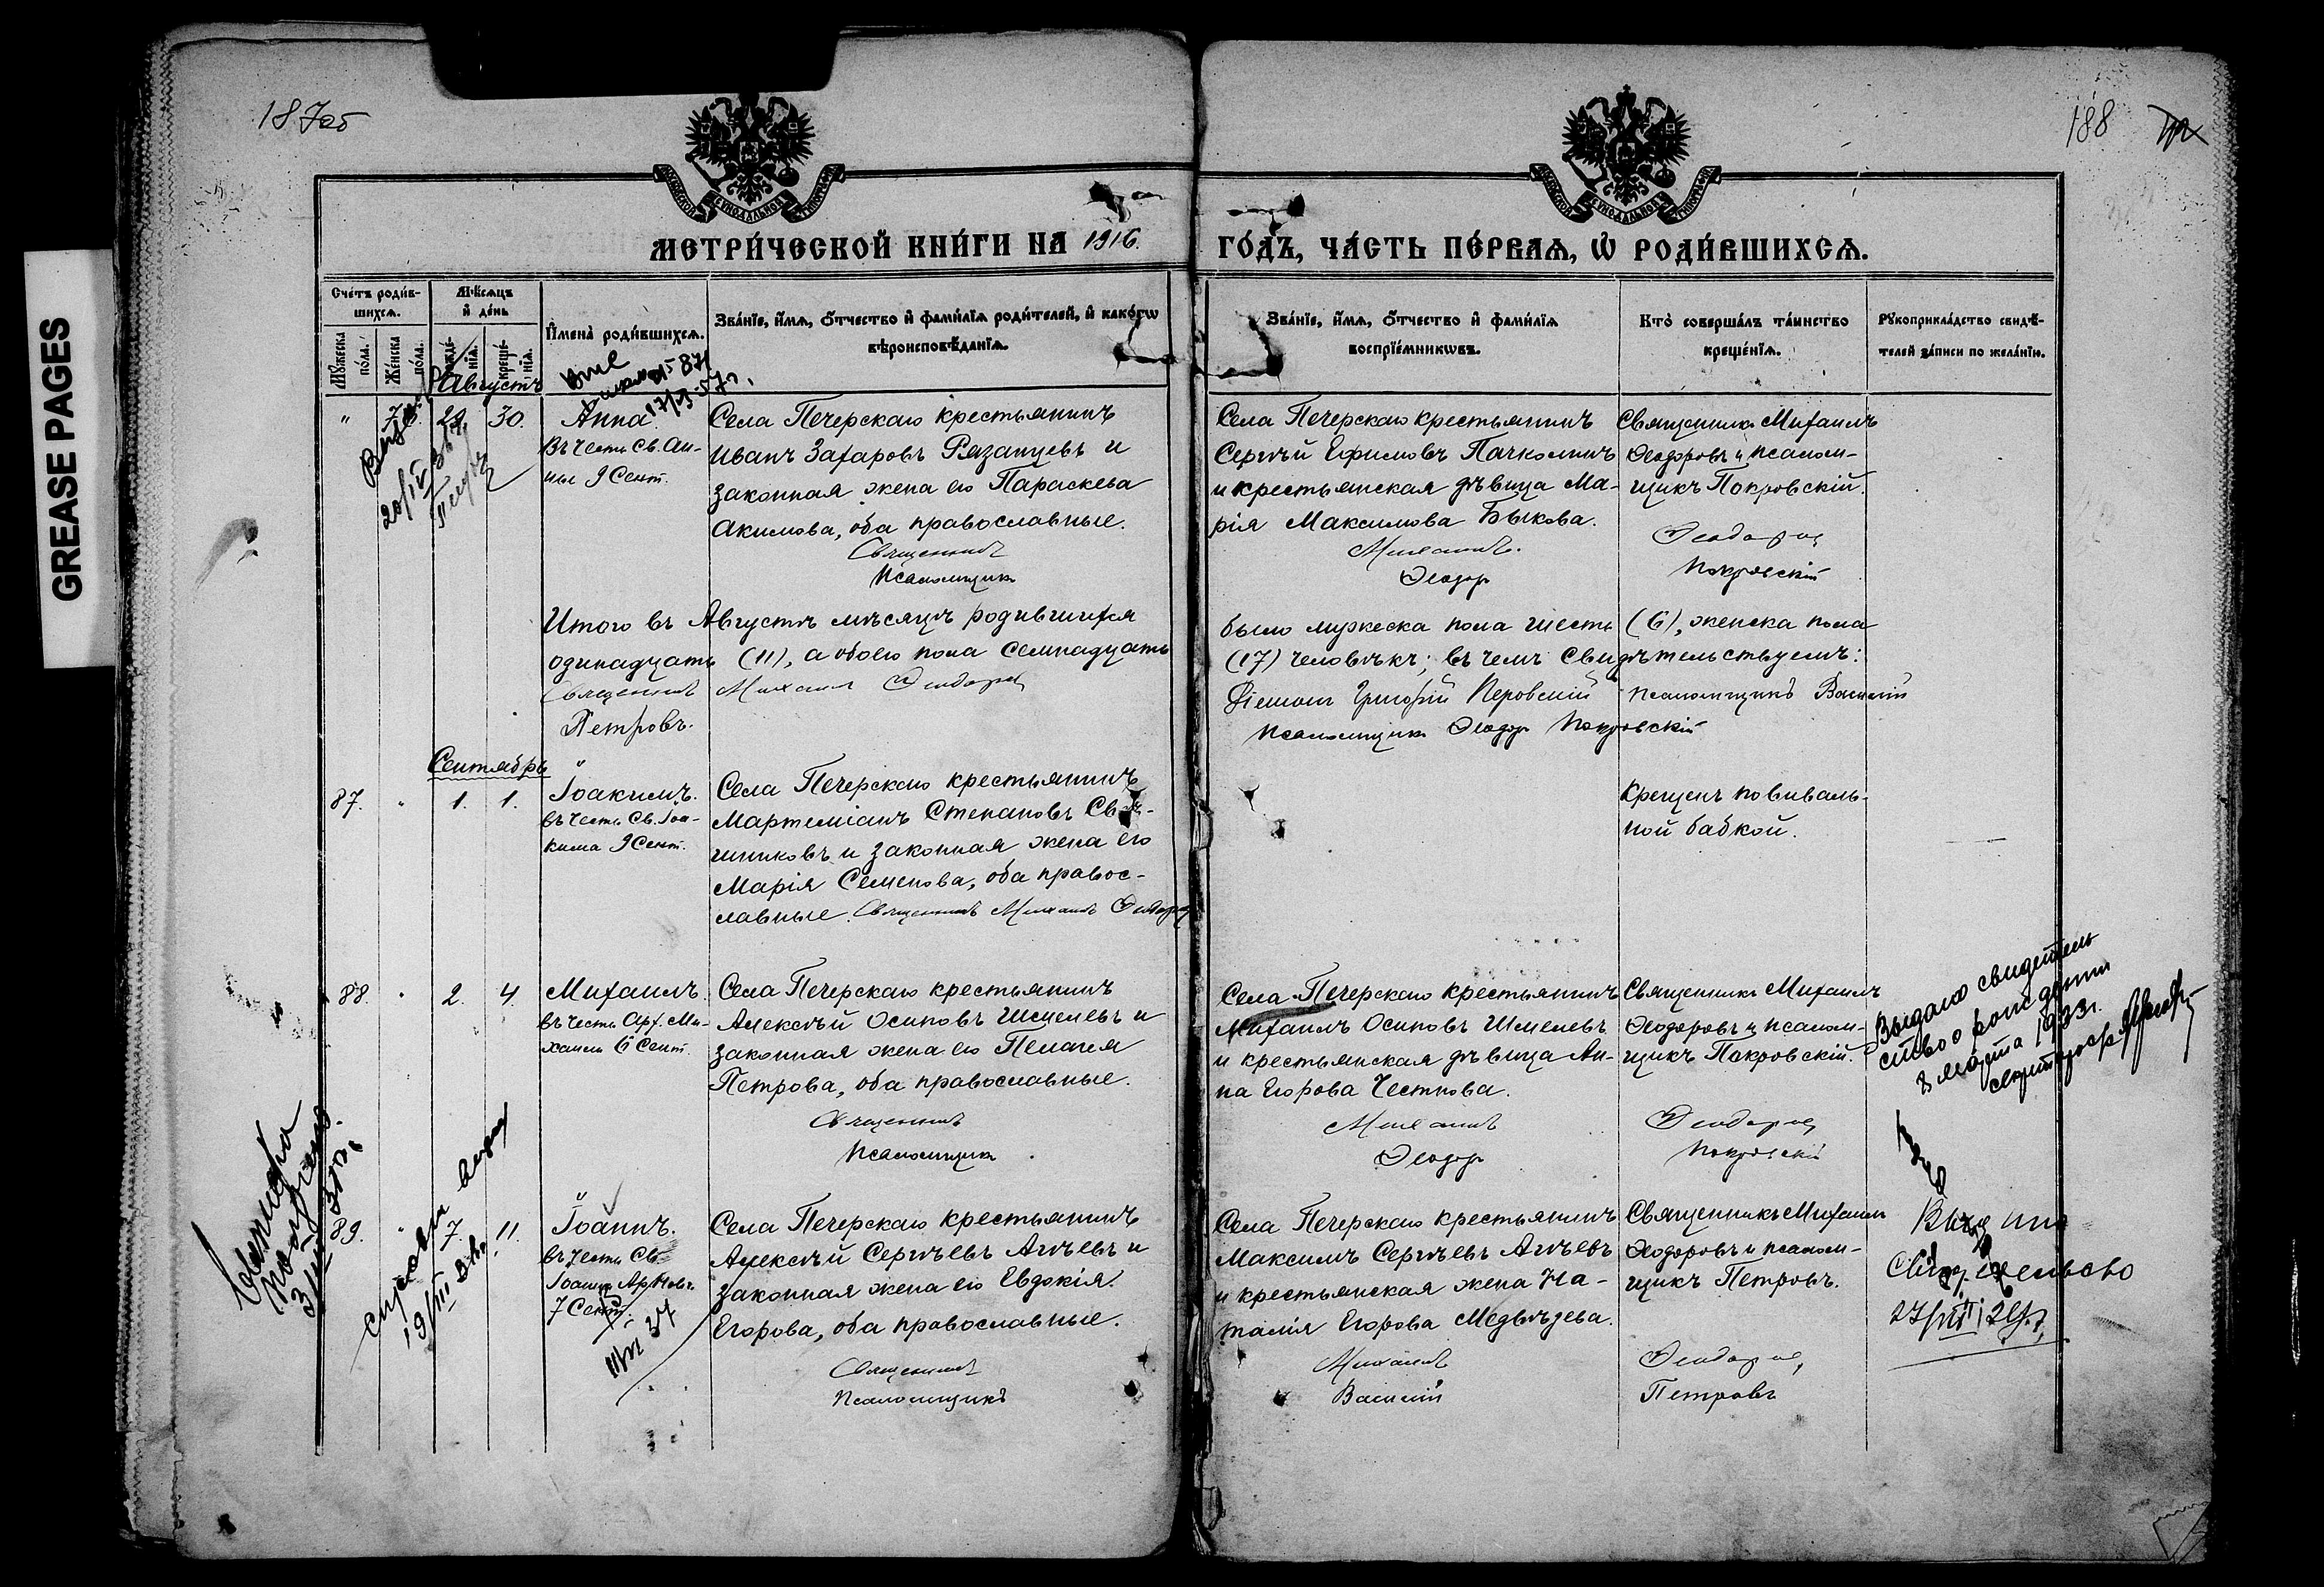 GREASE PAGES
187об
188
МЕТРИ́ЧЕСКОЙ КНИ́ГИ НА 1916.
ГО́ДЪ, ЧА́СТЬ ПЕ́РВАѦ, Ѡ РОДИ́ВШИХСѦ.
Сче́тъ роди́в-
шихсѧ.
Мѣ́сѧцъ
и́ де́нь
И҆мена̀ роди́вшихсѧ.
Зва́нїе, и҆́мѧ, ѻ҆́тчество и҆ фами́лїѧ роди́телей, и҆ како́гѡ
вѣроисповѣ́данїѧ.
Мꙋ́жеска
по́ла.
Же́нска
по́ла.
рожде́-
нїѧ.
креще́-
нїѧ.
Зва́нїе, и҆́мѧ, ѻ҆́тчество и҆ фами́лїѧ
воспрїе́мникѡвъ.
Кто̀ соверша́лъ та́инство
креще́нїѧ.
Рꙋкоприкла́дство свидѣ́-
телей за́писи по жела́нїю.
Августъ
29. 30.
Анна.
Въ честь Св. Ан-
ны 9 Сент.
Села Печерскаго крестьянинъ
Иванъ Захаровъ Рязанцевъ и
законная жена его Параскева
Акимова, оба православные.
Священникъ
Псаломщикъ
Села Печерскаго крестьянинъ
Сергѣй Ефимовъ Пачколинъ
и крестьянская дѣвица Ма-
рія Максимова Быкова.
Михаилъ
Ѳеодоръ
Священникъ Михаилъ
Ѳеодоровъ и псалом-
щикъ Покровскій.
Ѳеодоровъ
Покровскій
Итого въ Августѣ мѣсяцѣ родившихся
одинадцать (11), а обоего пола семнадцать
Священникъ Михаилъ Ѳеодоровъ
Петровъ.
было мужеска пола шесть (6), женска пола
(17) человѣкъ; въ чемъ свидѣтельствуемъ:
Діаконъ Григорій Перовскій псаломщикъ Василій
псаломщикъ Ѳеодоръ Покровскій
Сентябрь
87. " 1. 1.
Іоакимъ.
въ честь Св. Іоа-
кима 9 Сент.
Села Печерскаго крестьянинъ
Мартиміанъ Степановъ
и законная жена его
Марія Семенова, оба правос-
лавные. Священникъ Михаилъ Ѳеодоровъ
Крещенъ повиваль-
ной бабкой.
88. " 2. 4.
Михаилъ.
въ честь Арх. Ми-
хаила 6 Сент.
Села Печерскаго крестьянинъ
Алексѣй Осиповъ Шмелевъ и
законная жена его Пелагея
Петрова, оба православные.
Священникъ
Псаломщикъ
Села Печерскаго крестьянинъ
Михаилъ Осиповъ Шмелевъ
и крестьянская дѣвица Ан-
на Егорова Честнова.
Михаилъ
Ѳеодоръ
Священникъ Михаилъ
Ѳеодоровъ и псалом-
щикъ Покровскій.
Ѳеодоровъ
Покровскій
Выдано свидетель
ство о рождении
3 марта 1933 г.
89. 7. 11.
Іоаннъ.
въ честь Св.
7 Сент.
Села Печерскаго крестьянинъ
Алексѣй Сергѣевъ Агѣевъ и
законная жена его Евдокія
Егорова, оба православные.
Священникъ
Псаломщикъ
Села Печерскаго крестьянинъ
Максимъ Сергѣевъ Агѣевъ
и крестьянская жена На-
талія Егорова Медвѣдева.
Михаилъ
Василій
Священникъ Михаилъ
Ѳеодоровъ и псалом-
щикъ Петровъ.
Ѳеодоровъ
Петровъ